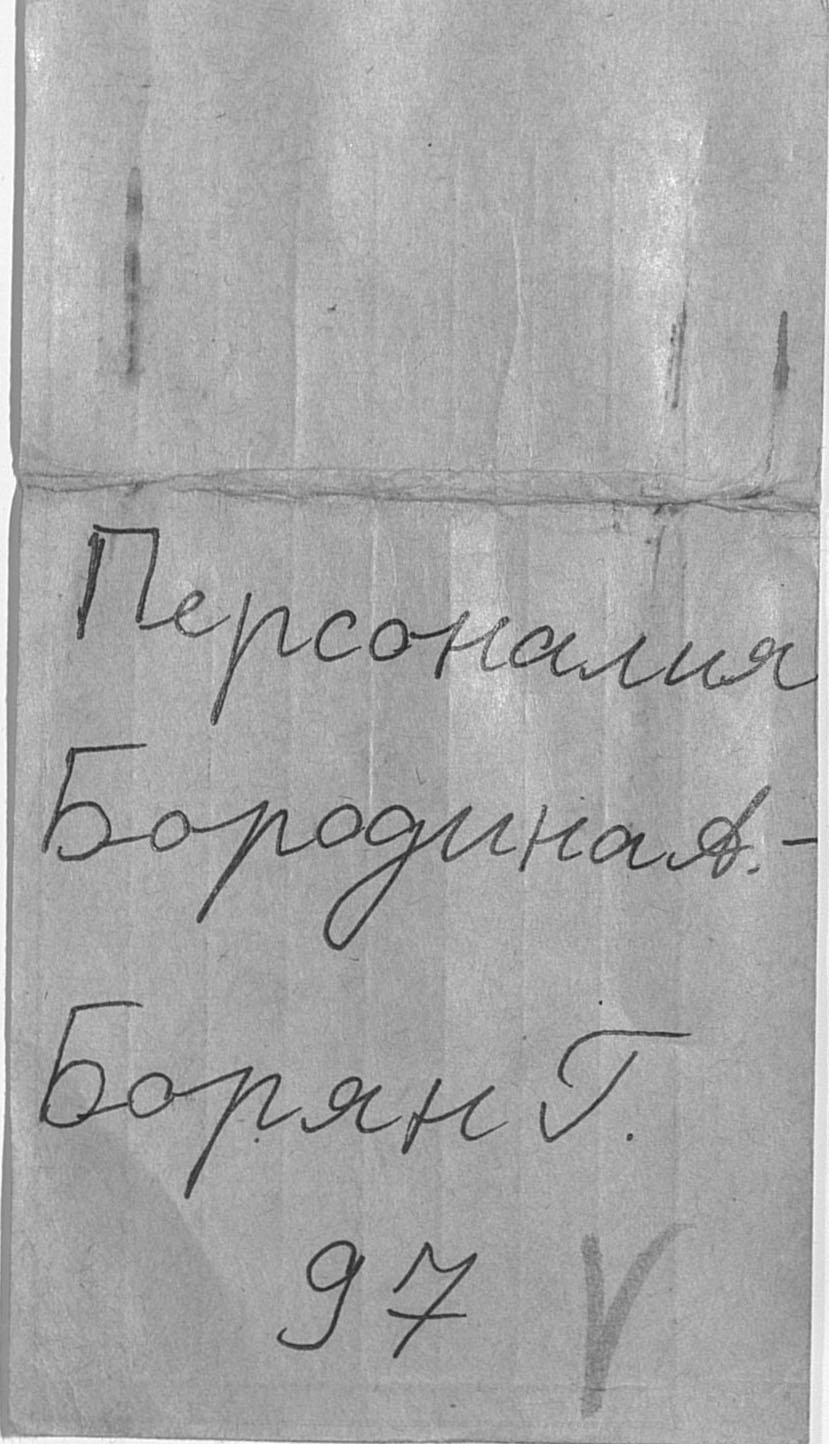 Персоналия
Бородина А. -
Борян Г.
97 V